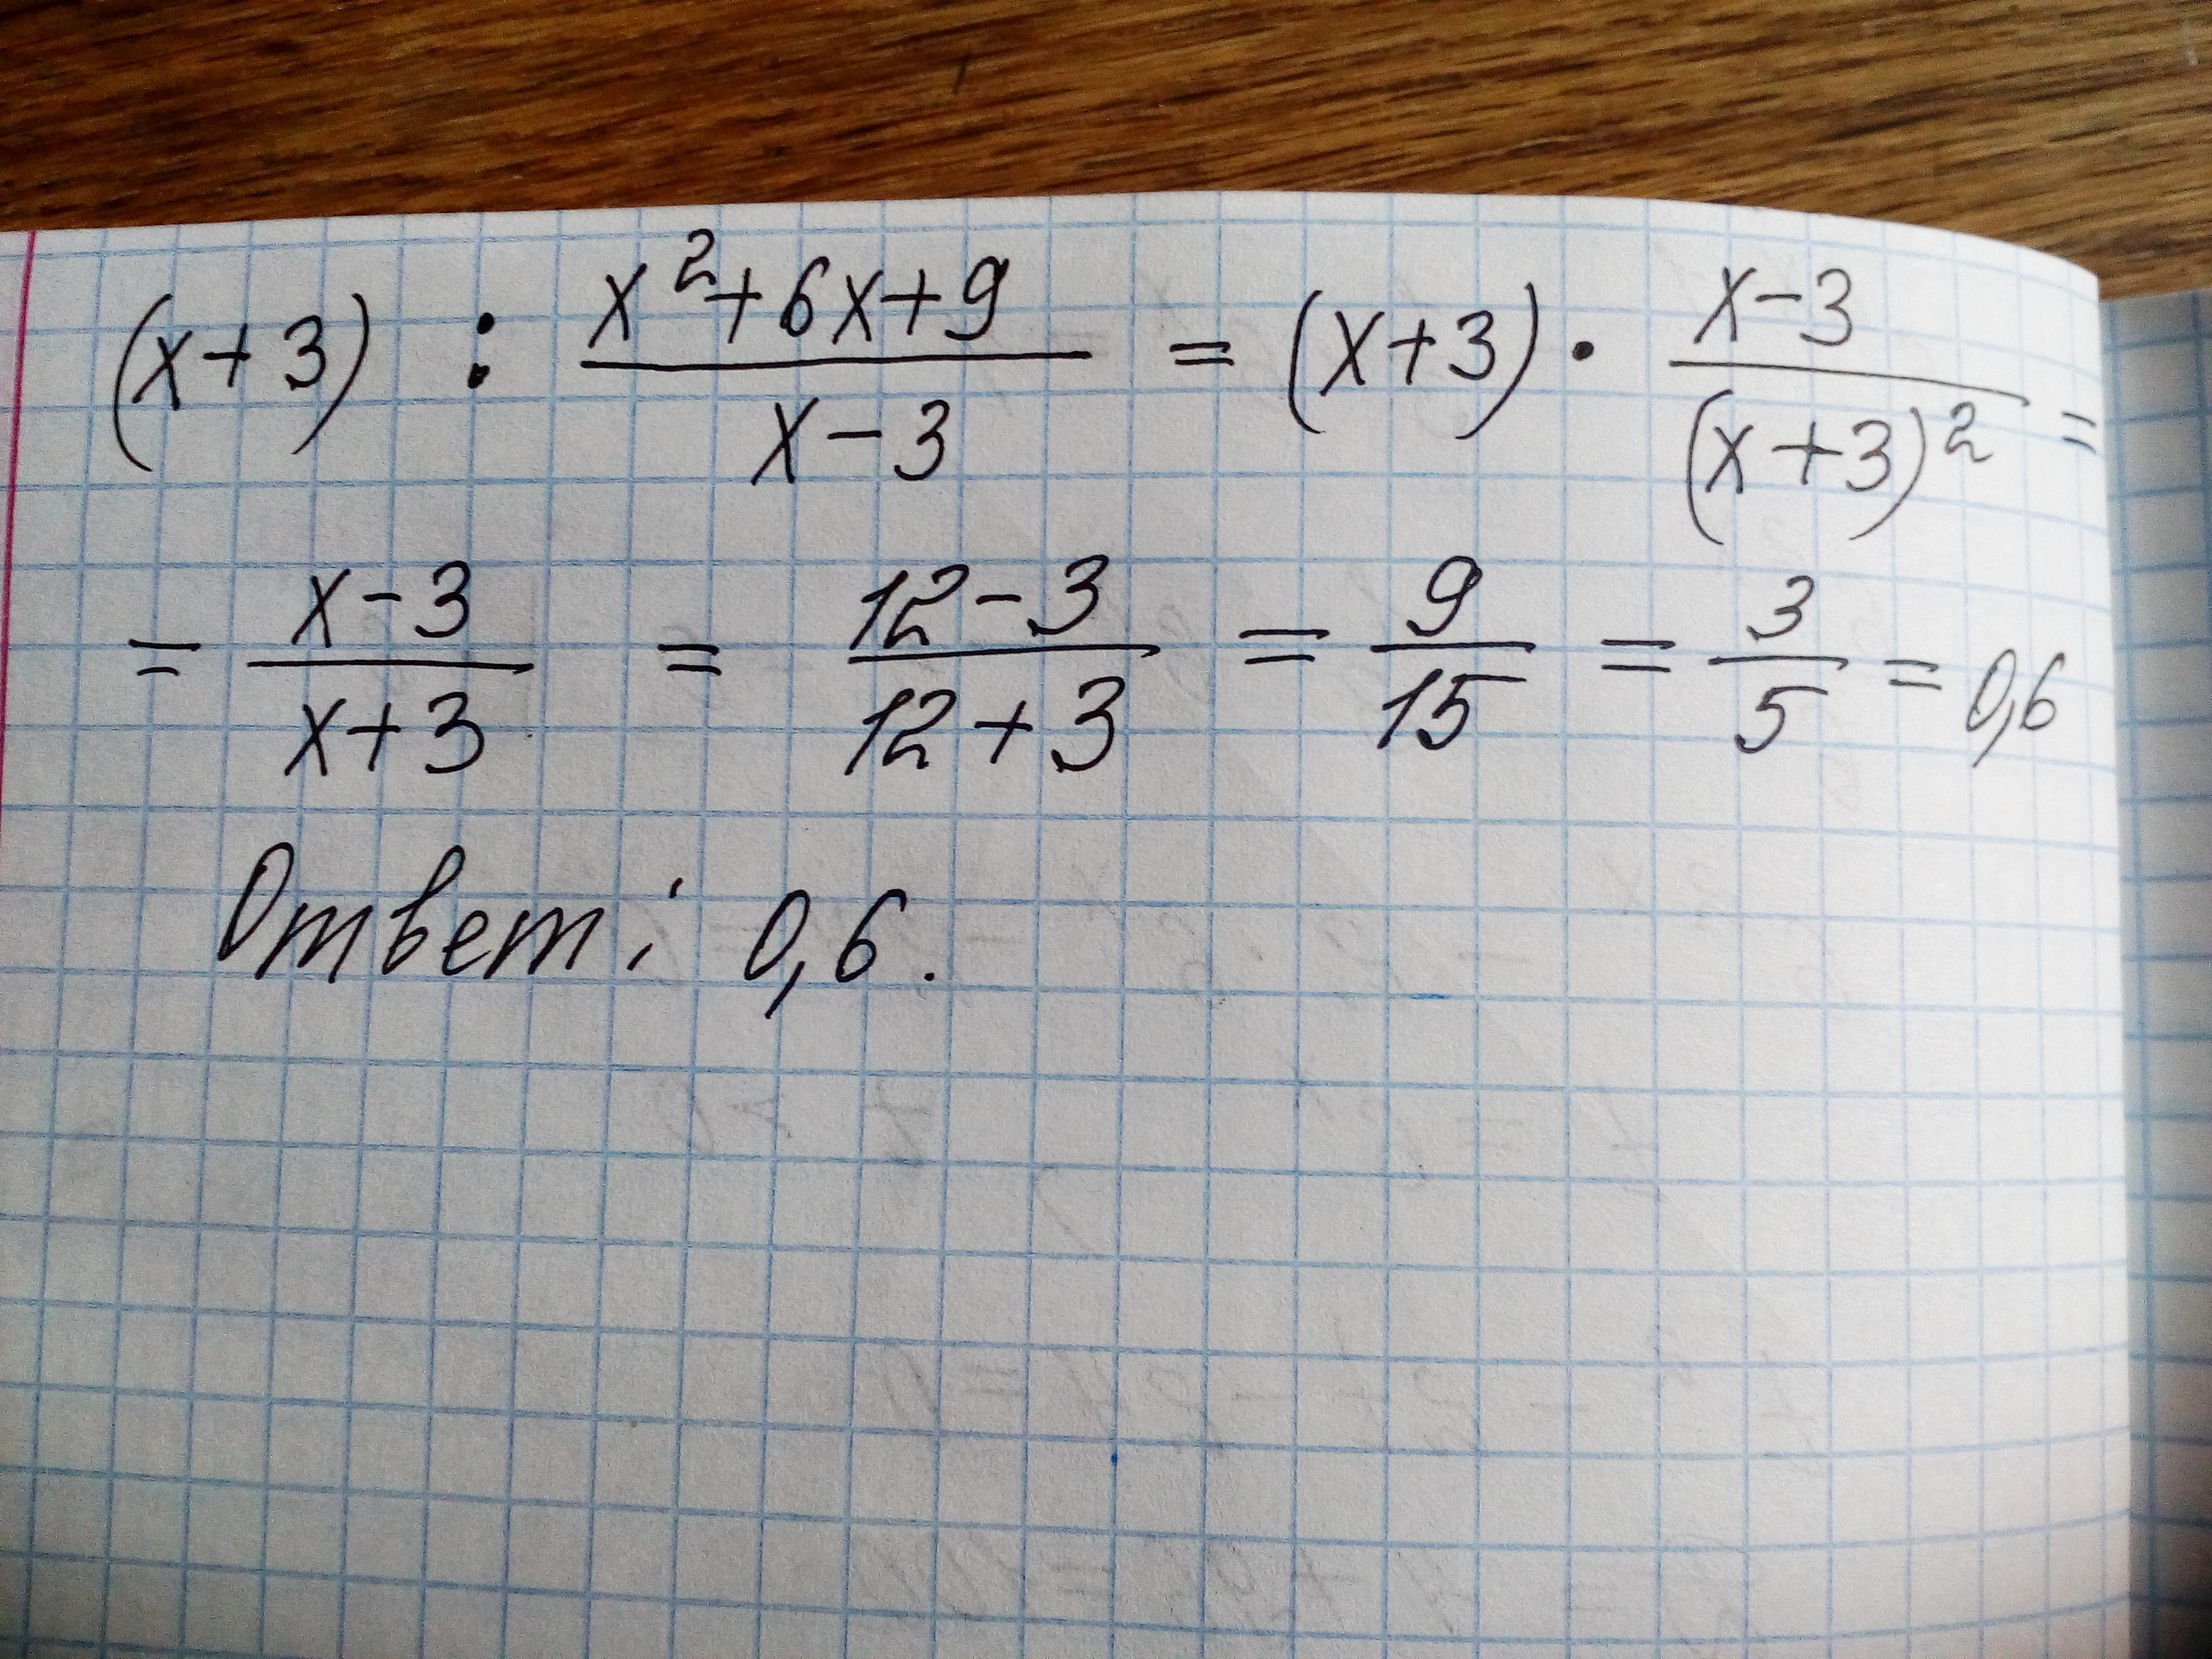 (x+3) : \frac{x^2+6x+9}{x-3} = (x+3) · \frac{x-3}{(x+3)^2} =
= \frac{x-3}{x+3} = \frac{12-3}{12+3} = \frac{9}{15} = \frac{3}{5} = 0,6
Ответ: 0,6.